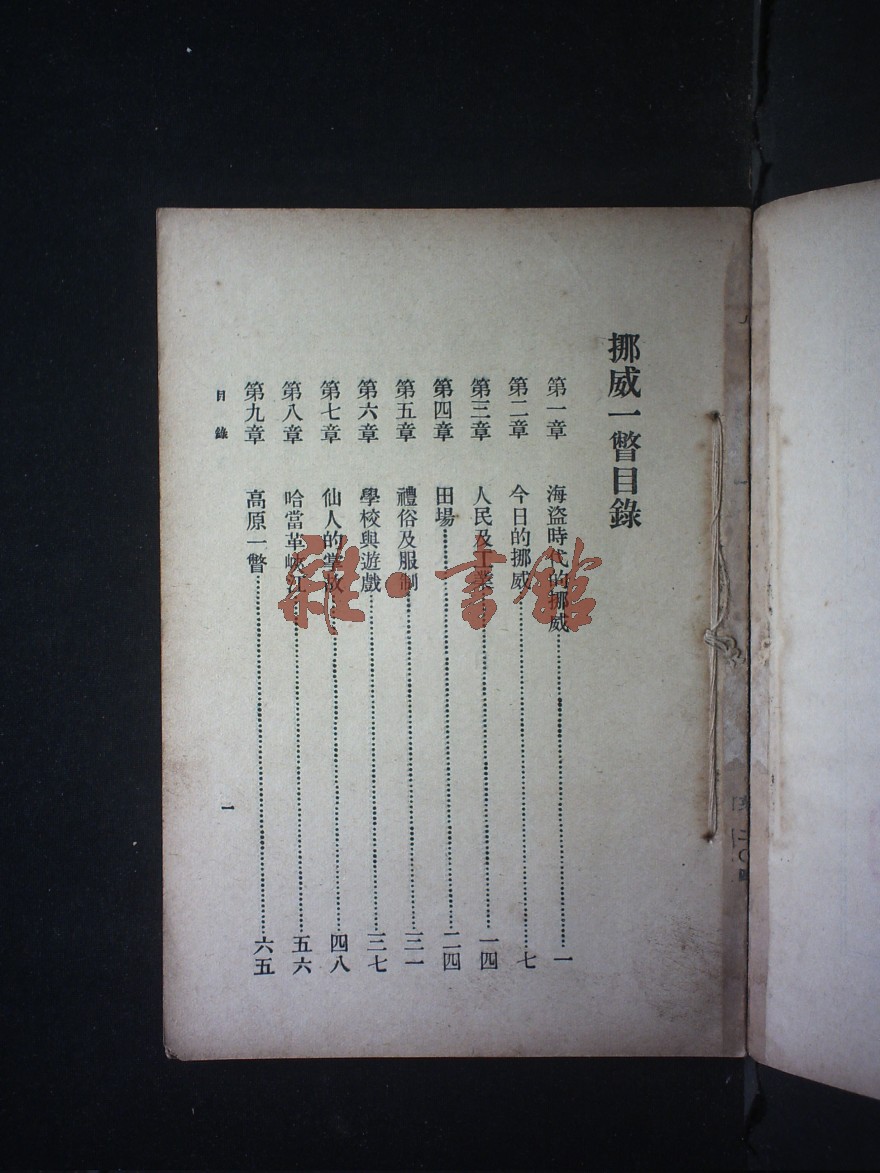 挪威一瞥目錄
第一章 海盜時代的挪威 一
第二章 今日的挪威 七
第三章 人民及工業 一四
第四章 田場 二四
第五章 禮俗及服制 三一
第六章 學校與遊戲 三七
第七章 仙人的掌故 四八
第八章 哈當革峽江 五六
第九章 高原一瞥 六五
目錄 一
雜·書館